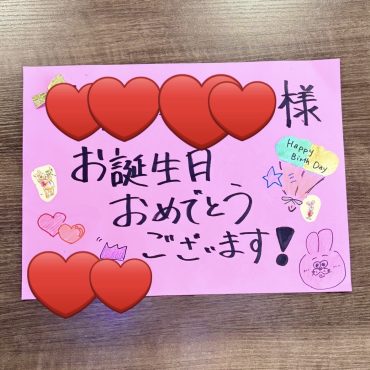 様
お誕生日
おめでとう
ございます!
Happy
Birth Day